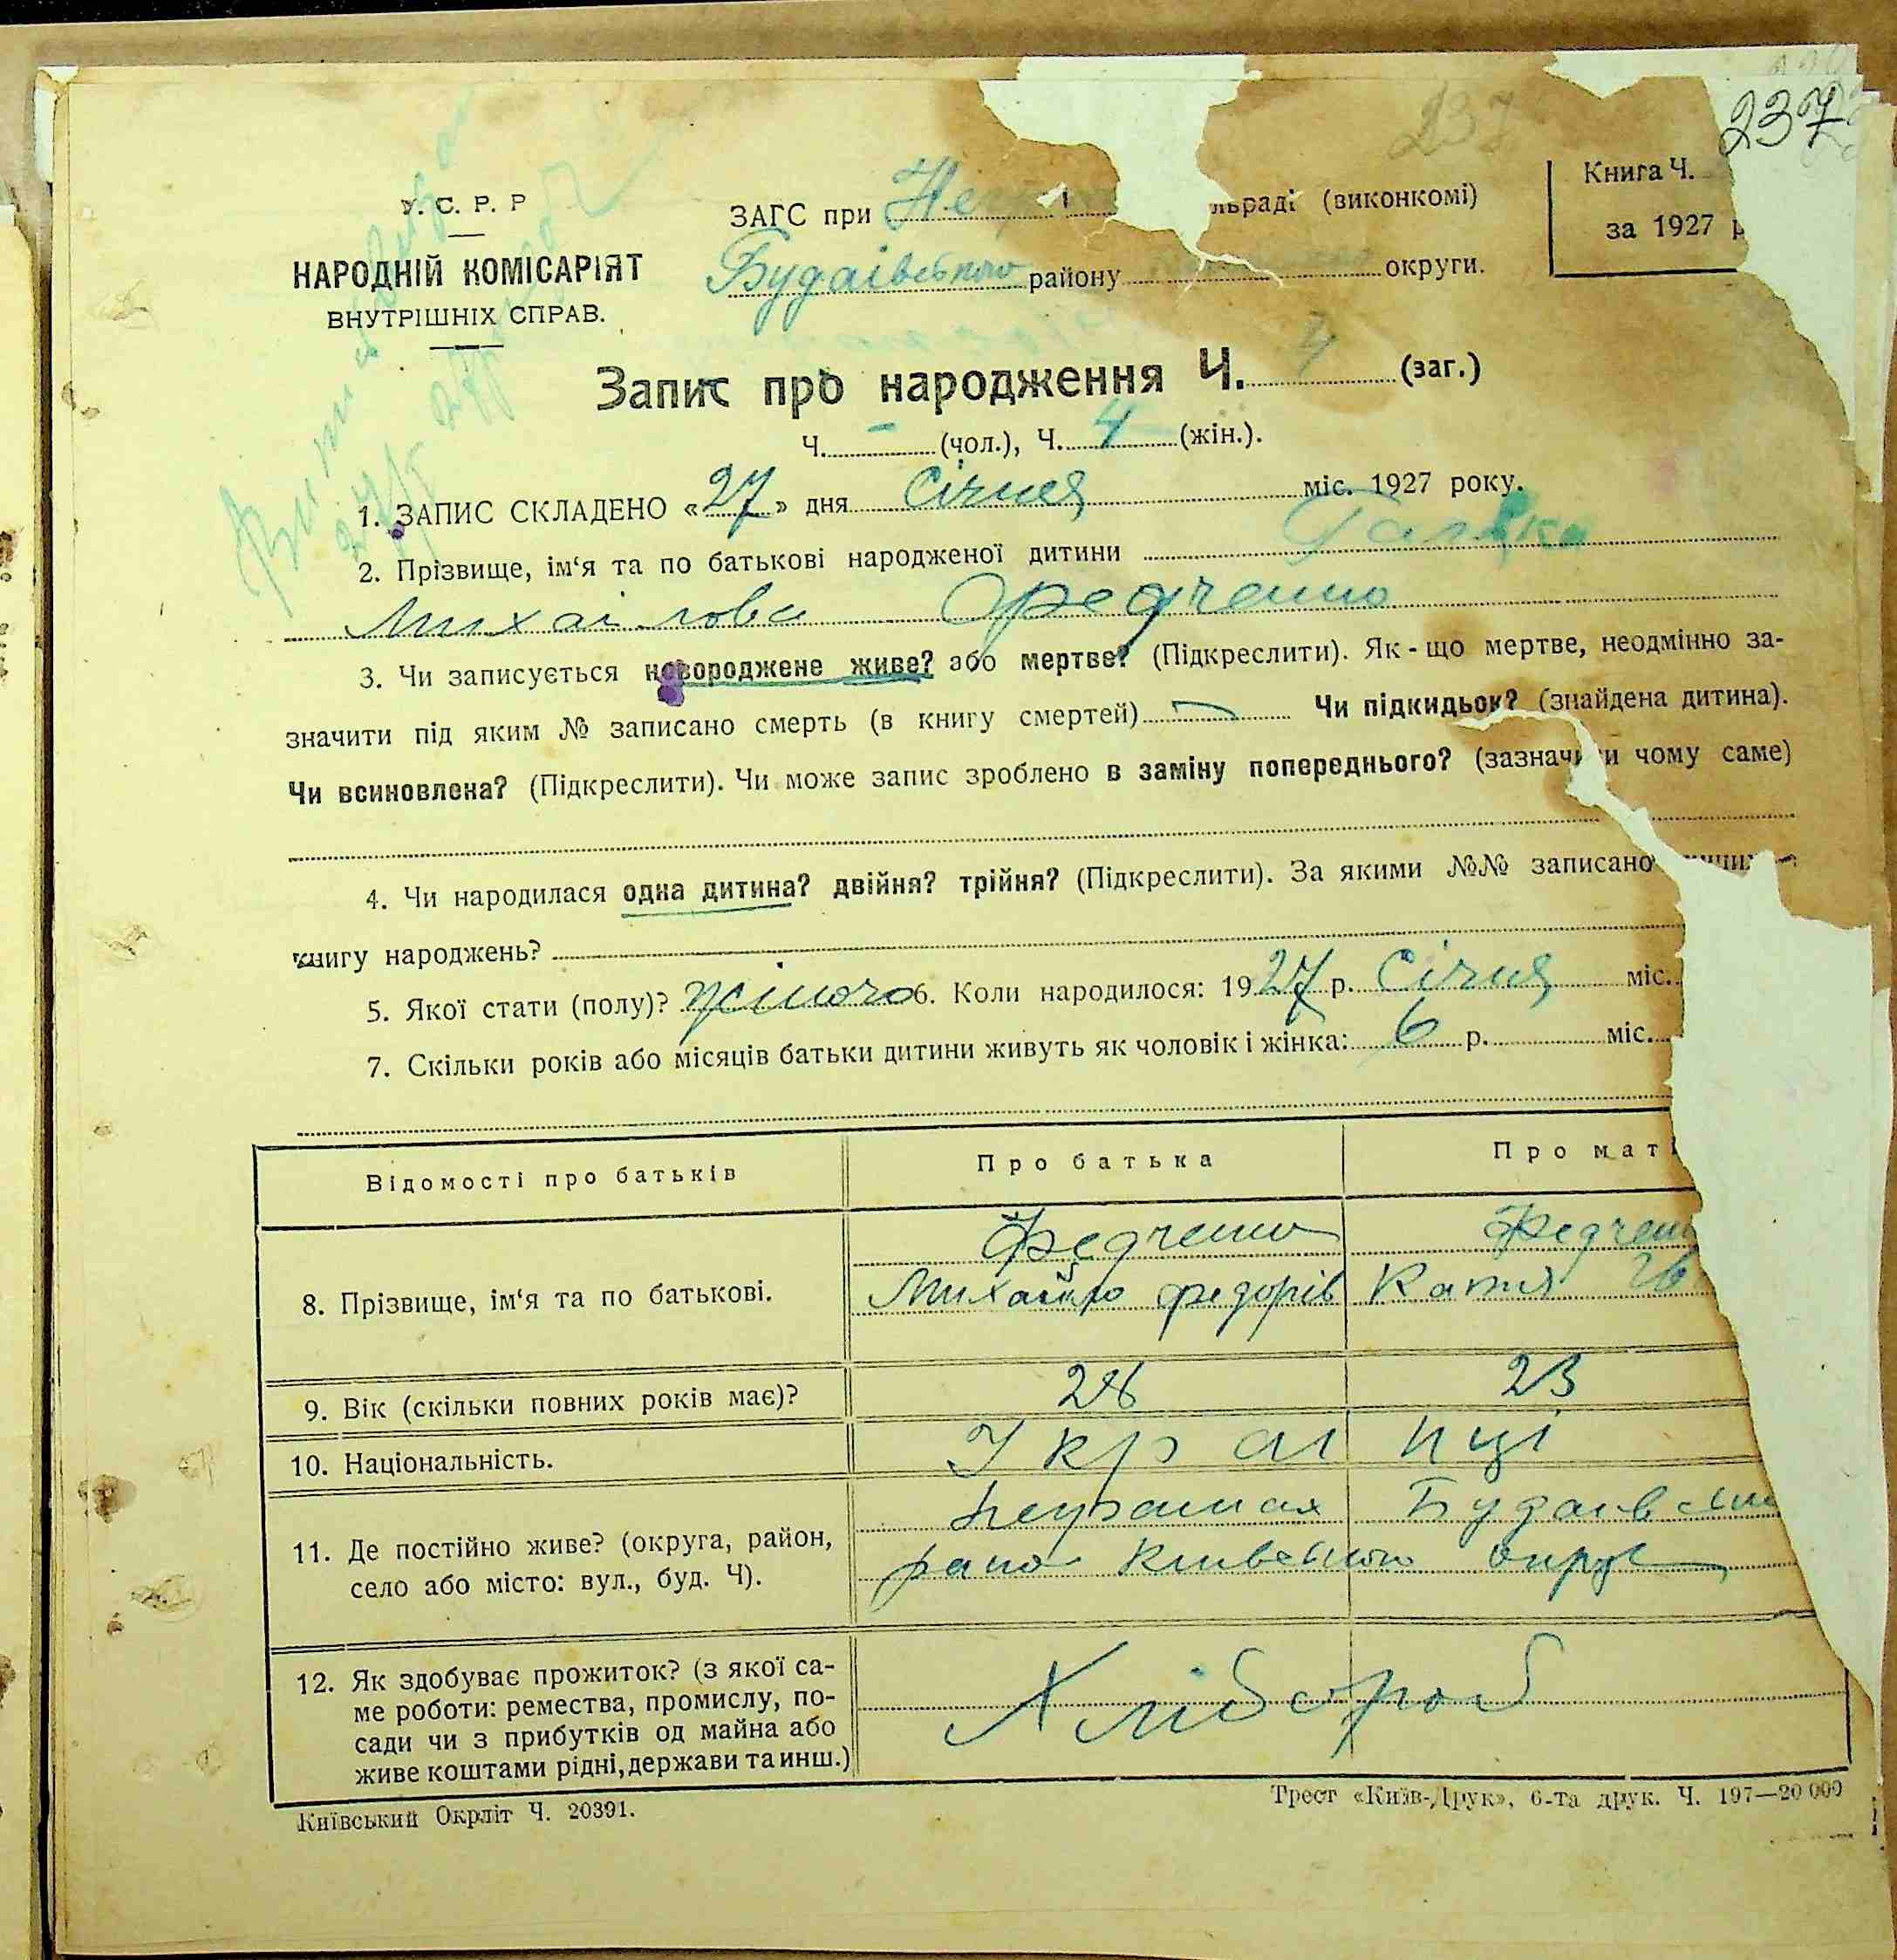 237
У. С. Р. Р
НАРОДНІЙ КОМІСАРІЯТ
ВНУТРІШНІХ СПРАВ.
ЗАГС при льраді (виконкомі)
Будаівського району округи.
Книга Ч.
за 1927 р
Запис про народження Ч. 4 (заг.)
Ч. – (чол.), Ч. 4 (жін.).
1. ЗАПИС СКЛАДЕНО «27» дня Січня міс. 1927 року.
2. Прізвище, ім‘я та по батькові народженої дитини Галька
Михаілова Федченко
3. Чи записується новороджене живе? або мертве? (Підкреслити). Як - що мертве, неодмінно за-
значити під яким № записано смерть (в книгу смертей) Чи підкидьок? (знайдена дитина).
Чи всиновлена? (Підкреслити). Чи може запис зроблено в заміну попереднього? (зазначити чому саме)
4. Чи народилася одна дитина? двійня? трійня? (Підкреслити). За якими №№ записано
книгу народжень?
5. Якої стати (полу)? жіночо 6. Коли народилося: 1927 р. Січня міс.
7. Скільки років або місяців батьки дитини живуть як чоловік і жінка: 6 р. міс.
Відомості про батьків
Про батька
Про маті
8. Прізвище, ім‘я та по батькові.
Федченко
Михайло Федорів
Федченк
Катя
9. Вік (скільки повних років має)?
28
23
10. Національність.
Украінці
11. Де постійно живе? (округа, район,
село або місто: вул., буд. Ч).
Неграшах Будаівськ
рано Киівського округ
12. Як здобуває прожиток? (з якої са-
ме роботи: ремества, промислу, по-
сади чи з прибутків од майна або
живе коштами рідні, держави та инш.)
Хлібороб
Київський Окрліт Ч. 20391.
Трест «Київ-Друк», 6-та друк. Ч. 197—20 000